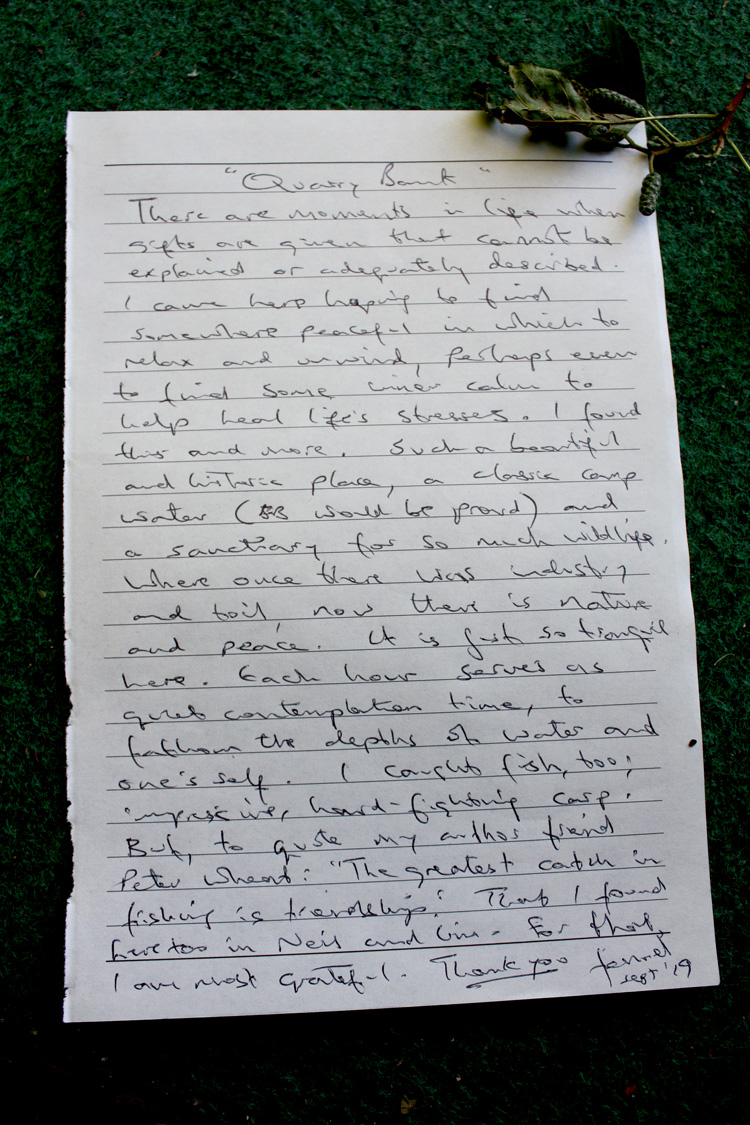 "Quarry Bank"
There are moments in life when
gifts are given that cannot be
explained or adequately described.
I came here hoping to find
somewhere peaceful in which to
relax and unwind, perhaps even
to find some inner calm to
help heal life's stresses. I found
this and more. Such a beautiful
and historic place, a classic carp
water (BB would be proud) and
a sanctuary for so much wildlife.
Where once there was industry
and toil, now there is nature
and peace. It is just so tranquil
here. Each hour serves as
quiet contemplation time, to
fathom the depths of water and
one's self. I caught fish, too;
impressive, hard-fighting carp.
But, to quote my author friend
Peter Wheat: "The greatest catch in
fishing is friendship." That I found
here too in Neil and . For that,
I am most grateful. Thank you fennel
sept '19